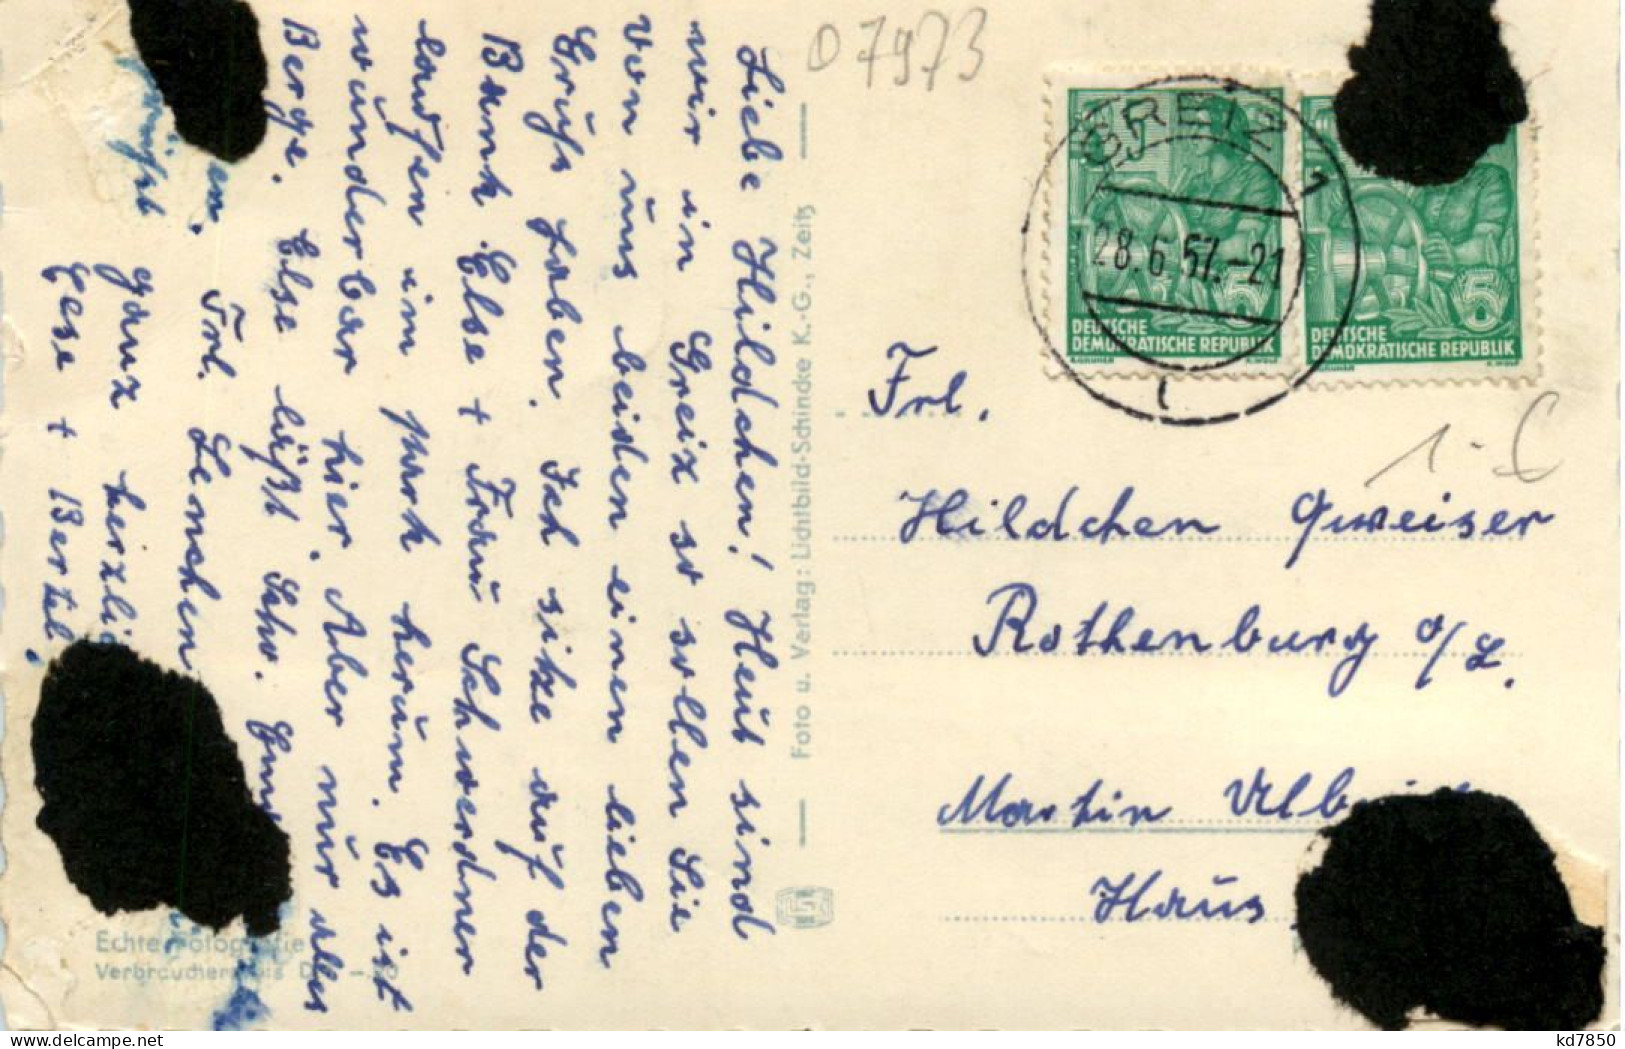 Liebe Hildchen! Heut sind
wir in Greiz so sollen Sie
von uns beiden einen lieben
Gruß haben. Ich sitze auf der
Bank. Else + Frau Schwerdner
laufen im park herum. Es ist
wunderbar hier. Aber nur alles
Berge. Else läßt Schw.
Frl. Lenchen
ganz
Gese + Bertel.
Foto u. Verlag: Lichtbild-Schincke K.-G., Zeitz
Echte Fotografie
07973
GREIZ 1
28.6.57.-21
5
DEUTSCHE
DEMOKRATISCHE REPUBLIK
5
DEUTSCHE
DEMOKRATISCHE REPUBLIK
Frl.
Hildchen Queiser
Rothenburg o/L.
Martin
Haus
kd7850